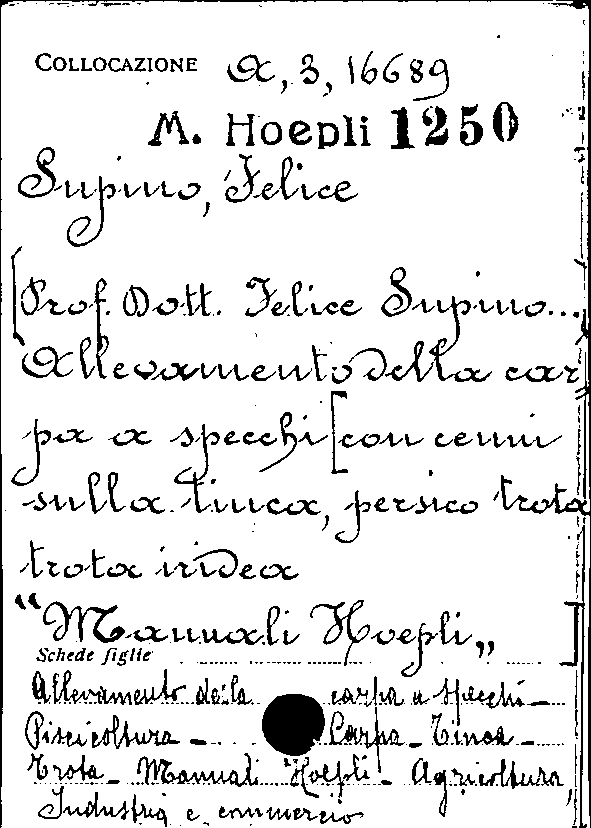 COLLOCAZIONE A, 3, 16689
M. Hoepli 1250
Supino, Felice
[Prof. Dott. Felice Supino...]
Allevamento della car=
pa a specchi [con cenni
sulla tinca, persico trota
trota iridea
"Manuali Hoepli„]
Schede figlie
Allevamento della carpa a specchi -
Piscicoltura - Carpa - Tinca -
Trota - Manuali Hoepli - Agricoltura,
Industria e commercio